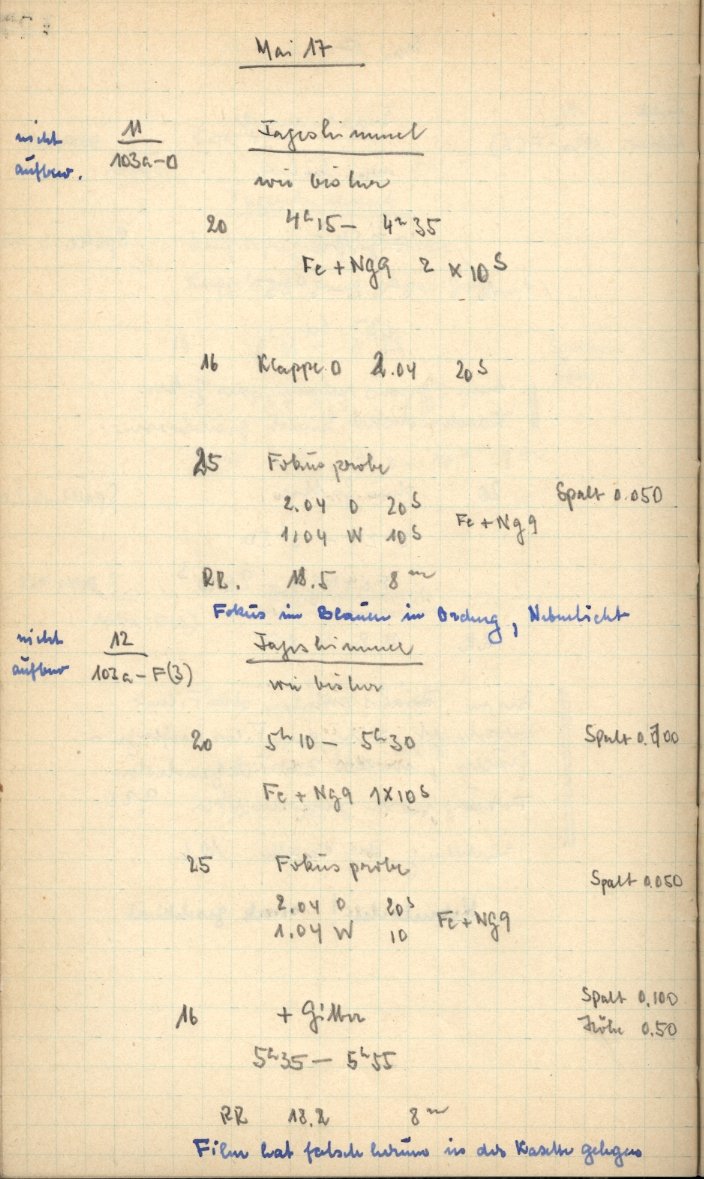 Mai 17
nicht aufbew.
11
103a-O
Tageshimmel
wie bisher
20 4h15 - 4h35
Fe + Ng9 2 x 10s
16 Klappe O 2.04 20s
25 Fokusprobe
2.04 O 20s
1.04 W 10s
Fe + Ng9
Spalt 0.050
RR. 18.5 8m
Fokus im Blauen in Ordnung, Nebenlicht
nicht aufbew
12
103a-F(3)
Tageshimmel
wie bisher
20 5h10 - 5h30
Spalt 0.100
Fe + Ng9 1x10s
25 Fokusprobe
Spalt 0.050
2.04 O 20s
1.04 W 10
Fe + Ng9
16 + Gitter
Spalt 0.100
Höhe 0.50
5h35 - 5h55
RR 18.2 8m
Film hat falsch herum in der Kasette gelegen